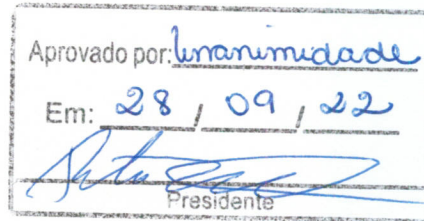 Aprovado por: Unanimidade
Em: 28 / 09 / 22
Presidente